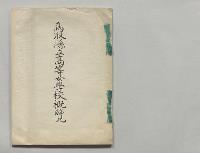 鳥取縣立高等女學校概覽